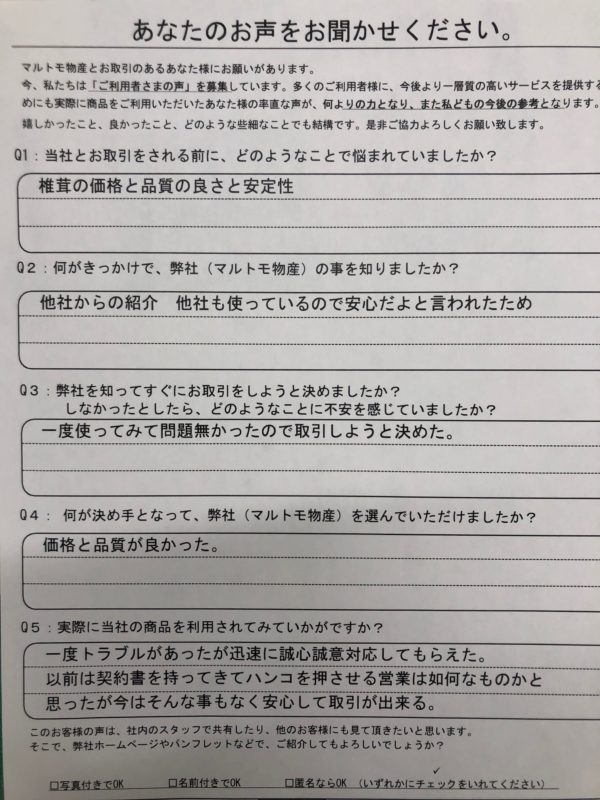 あなたのお声をお聞かせください。
マルトモ物産とお取引のあるあなた様にお願いがあります。
今、私たちは「ご利用者さまの声」を募集しています。多くのご利用者様に、今後より一層質の高いサービスを提供する
めにも実際に商品をご利用いただいたあなた様の率直な声が、何よりの力となり、また私どもの今後の参考となります。
嬉しかったこと、良かったこと、どのような些細なことでも結構です。是非ご協力よろしくお願い致します。
Q1：当社とお取引をされる前に、どのようなことで悩まれていましたか？
椎茸の価格と品質の良さと安定性
Q2：何がきっかけで、弊社（マルトモ物産）の事を知りましたか？
他社からの紹介　他社も使っているので安心だよと言われたため
Q3：弊社を知ってすぐにお取引をしようと決めましたか？
しなかったとしたら、どのようなことに不安を感じていましたか？
一度使ってみて問題無かったので取引しようと決めた。
Q4：何が決め手となって、弊社（マルトモ物産）を選んでいただけましたか？
価格と品質が良かった。
Q5：実際に当社の商品を利用されてみていかがですか？
一度トラブルがあったが迅速に誠心誠意対応してもらえた。
以前は契約書を持ってきてハンコを押させる営業は如何なものかと
思ったが今はそんな事もなく安心して取引が出来る。
このお客様の声は、社内のスタッフで共有したり、他のお客様にも見て頂きたいと思います。
そこで、弊社ホームページやパンフレットなどで、ご紹介してもよろしいでしょうか？
□写真付きでOK　□名前付きでOK　□匿名ならOK（いずれかにチェックをいれてください）